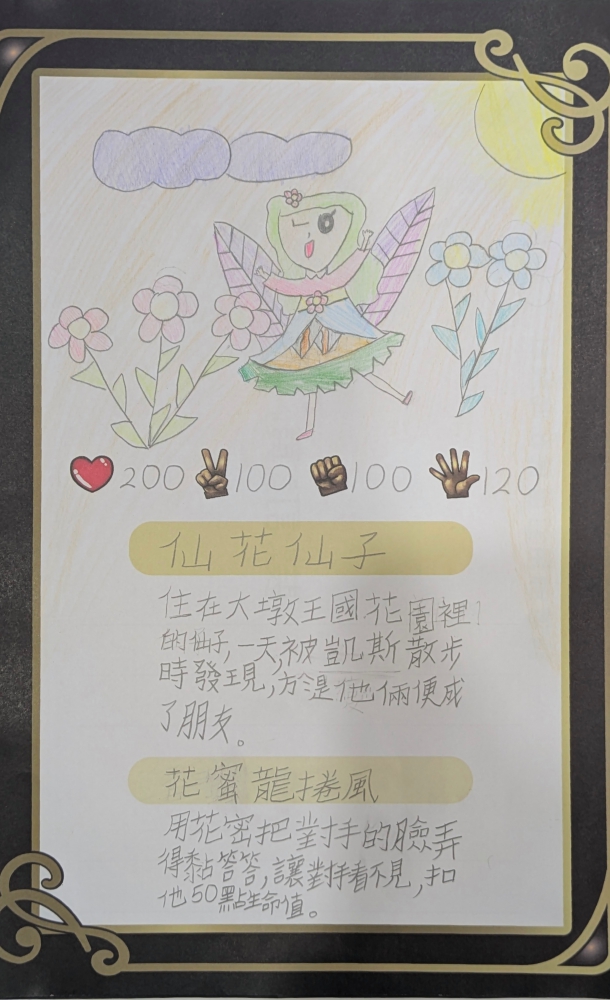 200 100 100 120
仙花仙子
住在大墩王國花園裡
的仙子,一天,被凱斯散步
時發現,於是他倆便成
了朋友。
花蜜龍捲風
用花密把對手的臉弄
得黏答答,讓對手看不見,扣
他50點生命值。